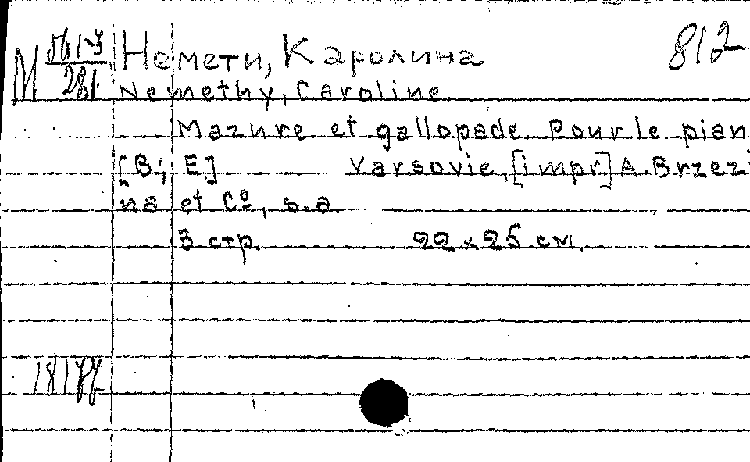 Немети, Каролина 812
M
Nemethy, Caroline
Mazure et gallopade pour le pian
[B; E] Varsovie, [impr] A. Brzezi
na et Cº, s.a.
3 стр. 22 x 25 см.
18177